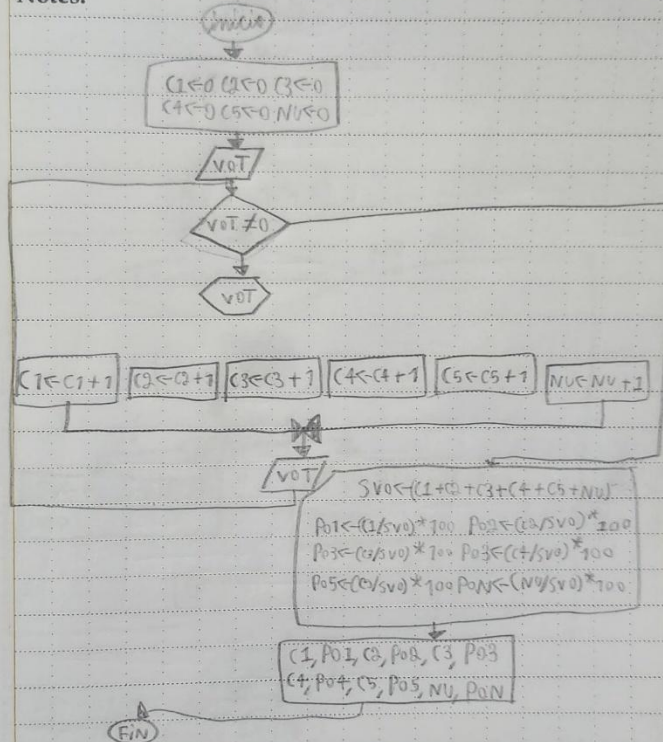 Notes:
inicio
C1←0 C2←0 C3←0
C4←0 C5←0 NU←0
VOT
VOT ≠0
VOT
C1←C1+1 C2←C2+1 C3←C3+1 C4←C4+1 C5←C5+1 NU←NU+1
VOT
SVO←(C1+C2+C3+C4+C5+NU)
PO1←(C1/SVO)*100 PO2←(C2/SVO)*100
PO3←(C3/SVO)*100 PO3←(C4/SVO)*100
PO5←(C5/SVO)*100 PON←(NU/SVO)*100
C1, PO1, C2, PO2, C3, PO3
C4, PO4, C5, PO5, NU, PON
FiN